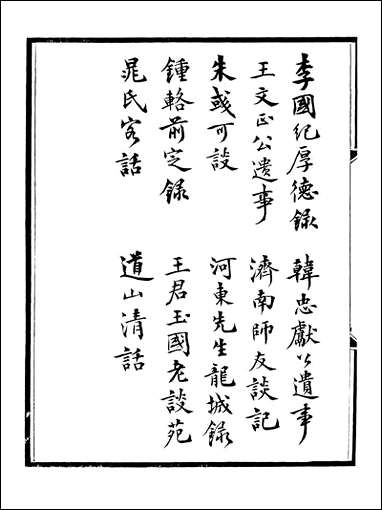 李國紀厚德錄　韓忠獻公遺事
王文正公遺事　濟南師友談記
朱彧可談　河東先生龍城錄
鍾輅前定錄　王君玉國老談苑
晁氏客話　道山清話